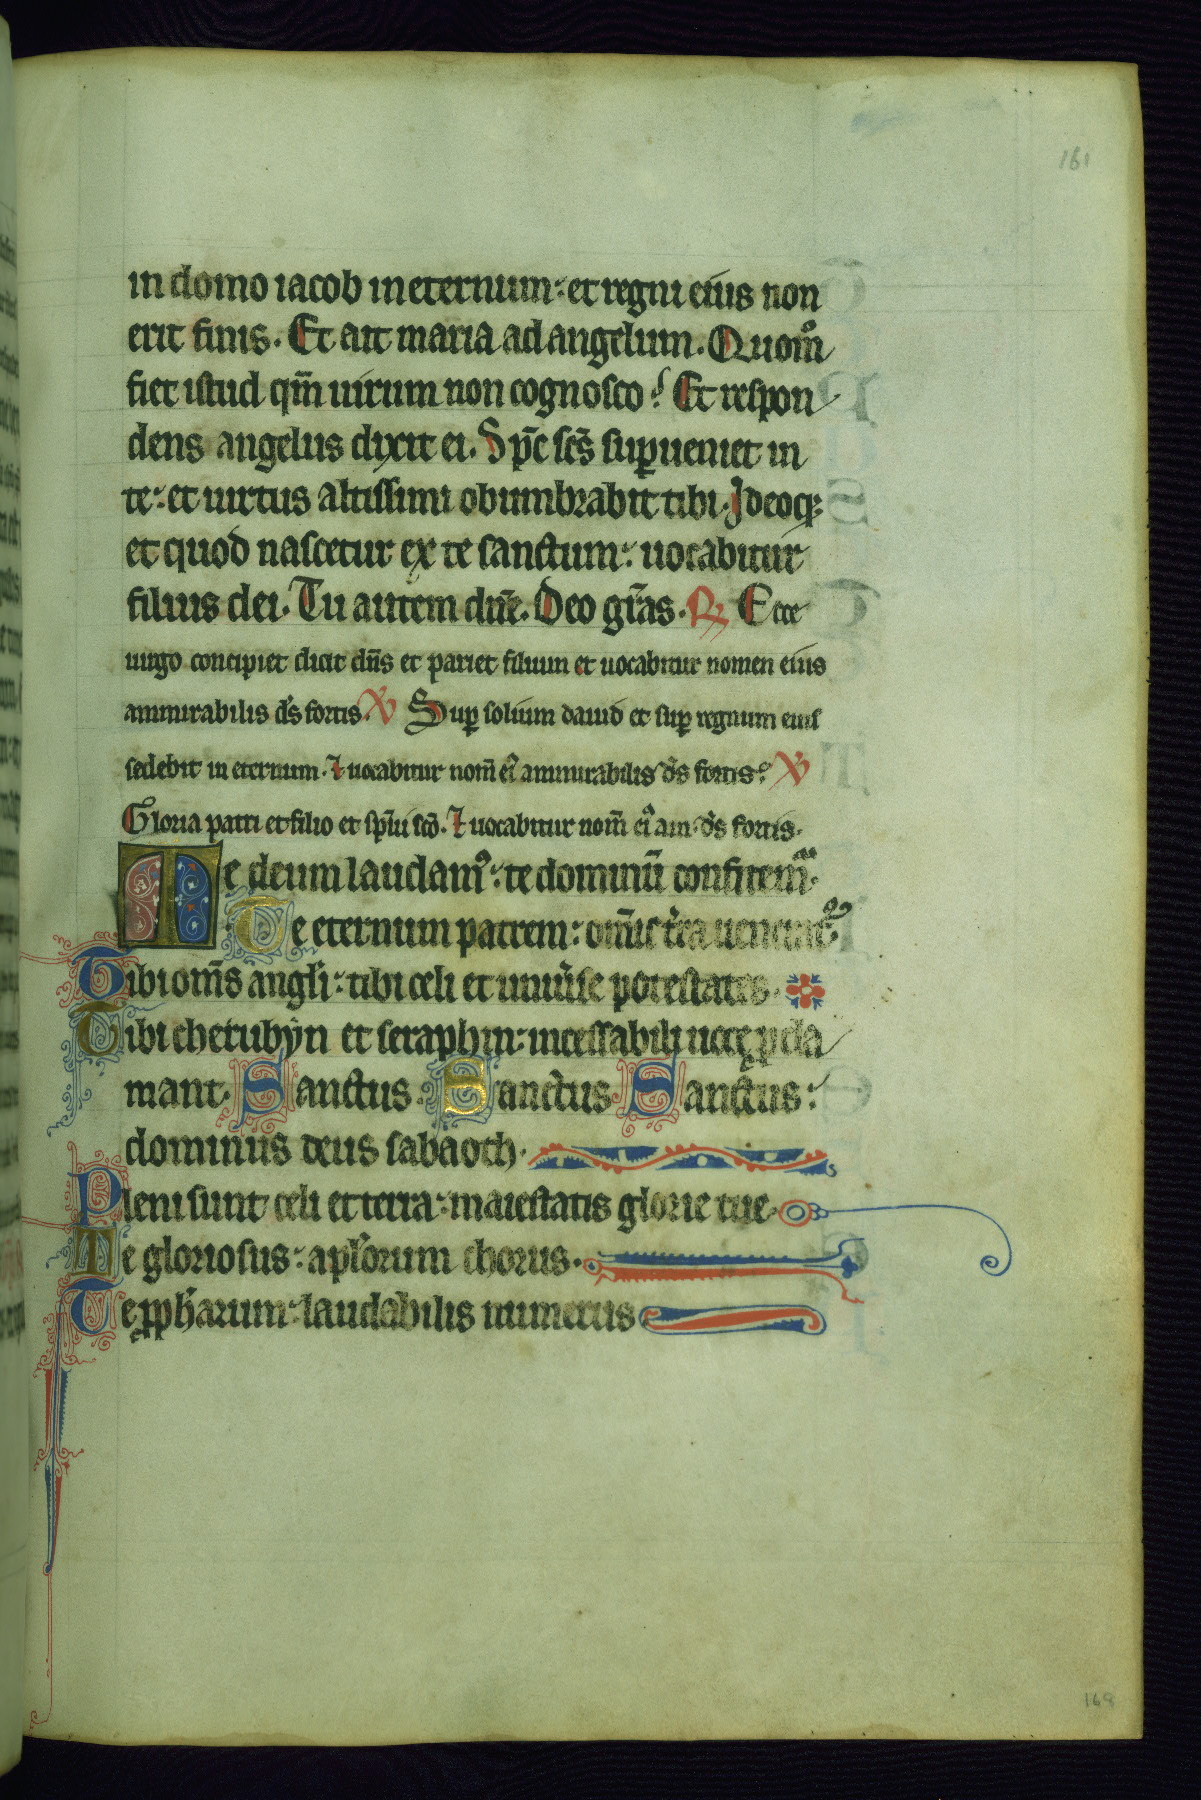 161
in domo iacob in eternum: et regni eius non
erit finis. Et ait maria ad angelum. Quom̊
fiet istud qm̄ uirum non cognosco? Et respon
dens angelus dixit ei. Sp̄c sc̄s suꝑueniet in
te: et uirtus altissimi obumbrabit tibi. Ideoq;
et quod nascetur ex te sanctum: uocabitur
filius dei. Tu autem dn̄e. Deo gr̄as. ℟ Ecce
uirgo concipiet dicit dn̄s et pariet filium et uocabitur nomen eius
ammirabilis d̄s fortis. ℣ Suꝑ solium dauid et suꝑ regnum eius
sedebit in eternum. ⁊ uocabitur nom̄ ei᷒ ammirabilis d̄s fortis. ℣
Gloria patri et filio et sp̄ui sc̄o. ⁊ uocabitur nom̄ ei᷒ am. d̄s fortis.
Te deum laudam᷒: te dominū confitem᷑.
Te eternum patrem: om̄is t̄ra uenerat᷑
Tibi om̄s angl̄i: tibi celi et uniu̓se potestates.
Tibi cherubyn et seraphin: incessabili uoce ꝓcla
mant. Sanctus. Sanctus. Sanctus:
dominus deus sabaoth.
Pleni sunt celi et terra: maiestatis glorie tue.
Te gloriosus: apl̄orum chorus.
Te ꝓph̄arum: laudabilis numerus
168